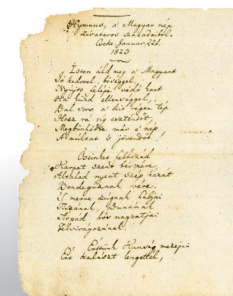 Hymnus, a' Magyar nép
zivataros századaiból.
Cseke, Januar. 22d.
1823
Isten áldd meg a Magyart
Jó kedvel, bőséggel,
Nyújts feléje védő kart
Ha küzd ellenséggel,
Bal sors a kit régen tép
Hozz rá víg esztendőt,
Megbünhödte már e nép
A multat s jövendőt.
Őseinket felhozád
Kárpát szent bérczére,
Általad nyert szép hazát
Bendegúznak vére.
S merre zúgnak habjai
Tiszának, Dunának
Árpád hős magzatjai
Felvirágozának.
Értünk Kunság mezein
Ért kalászt lengettél,